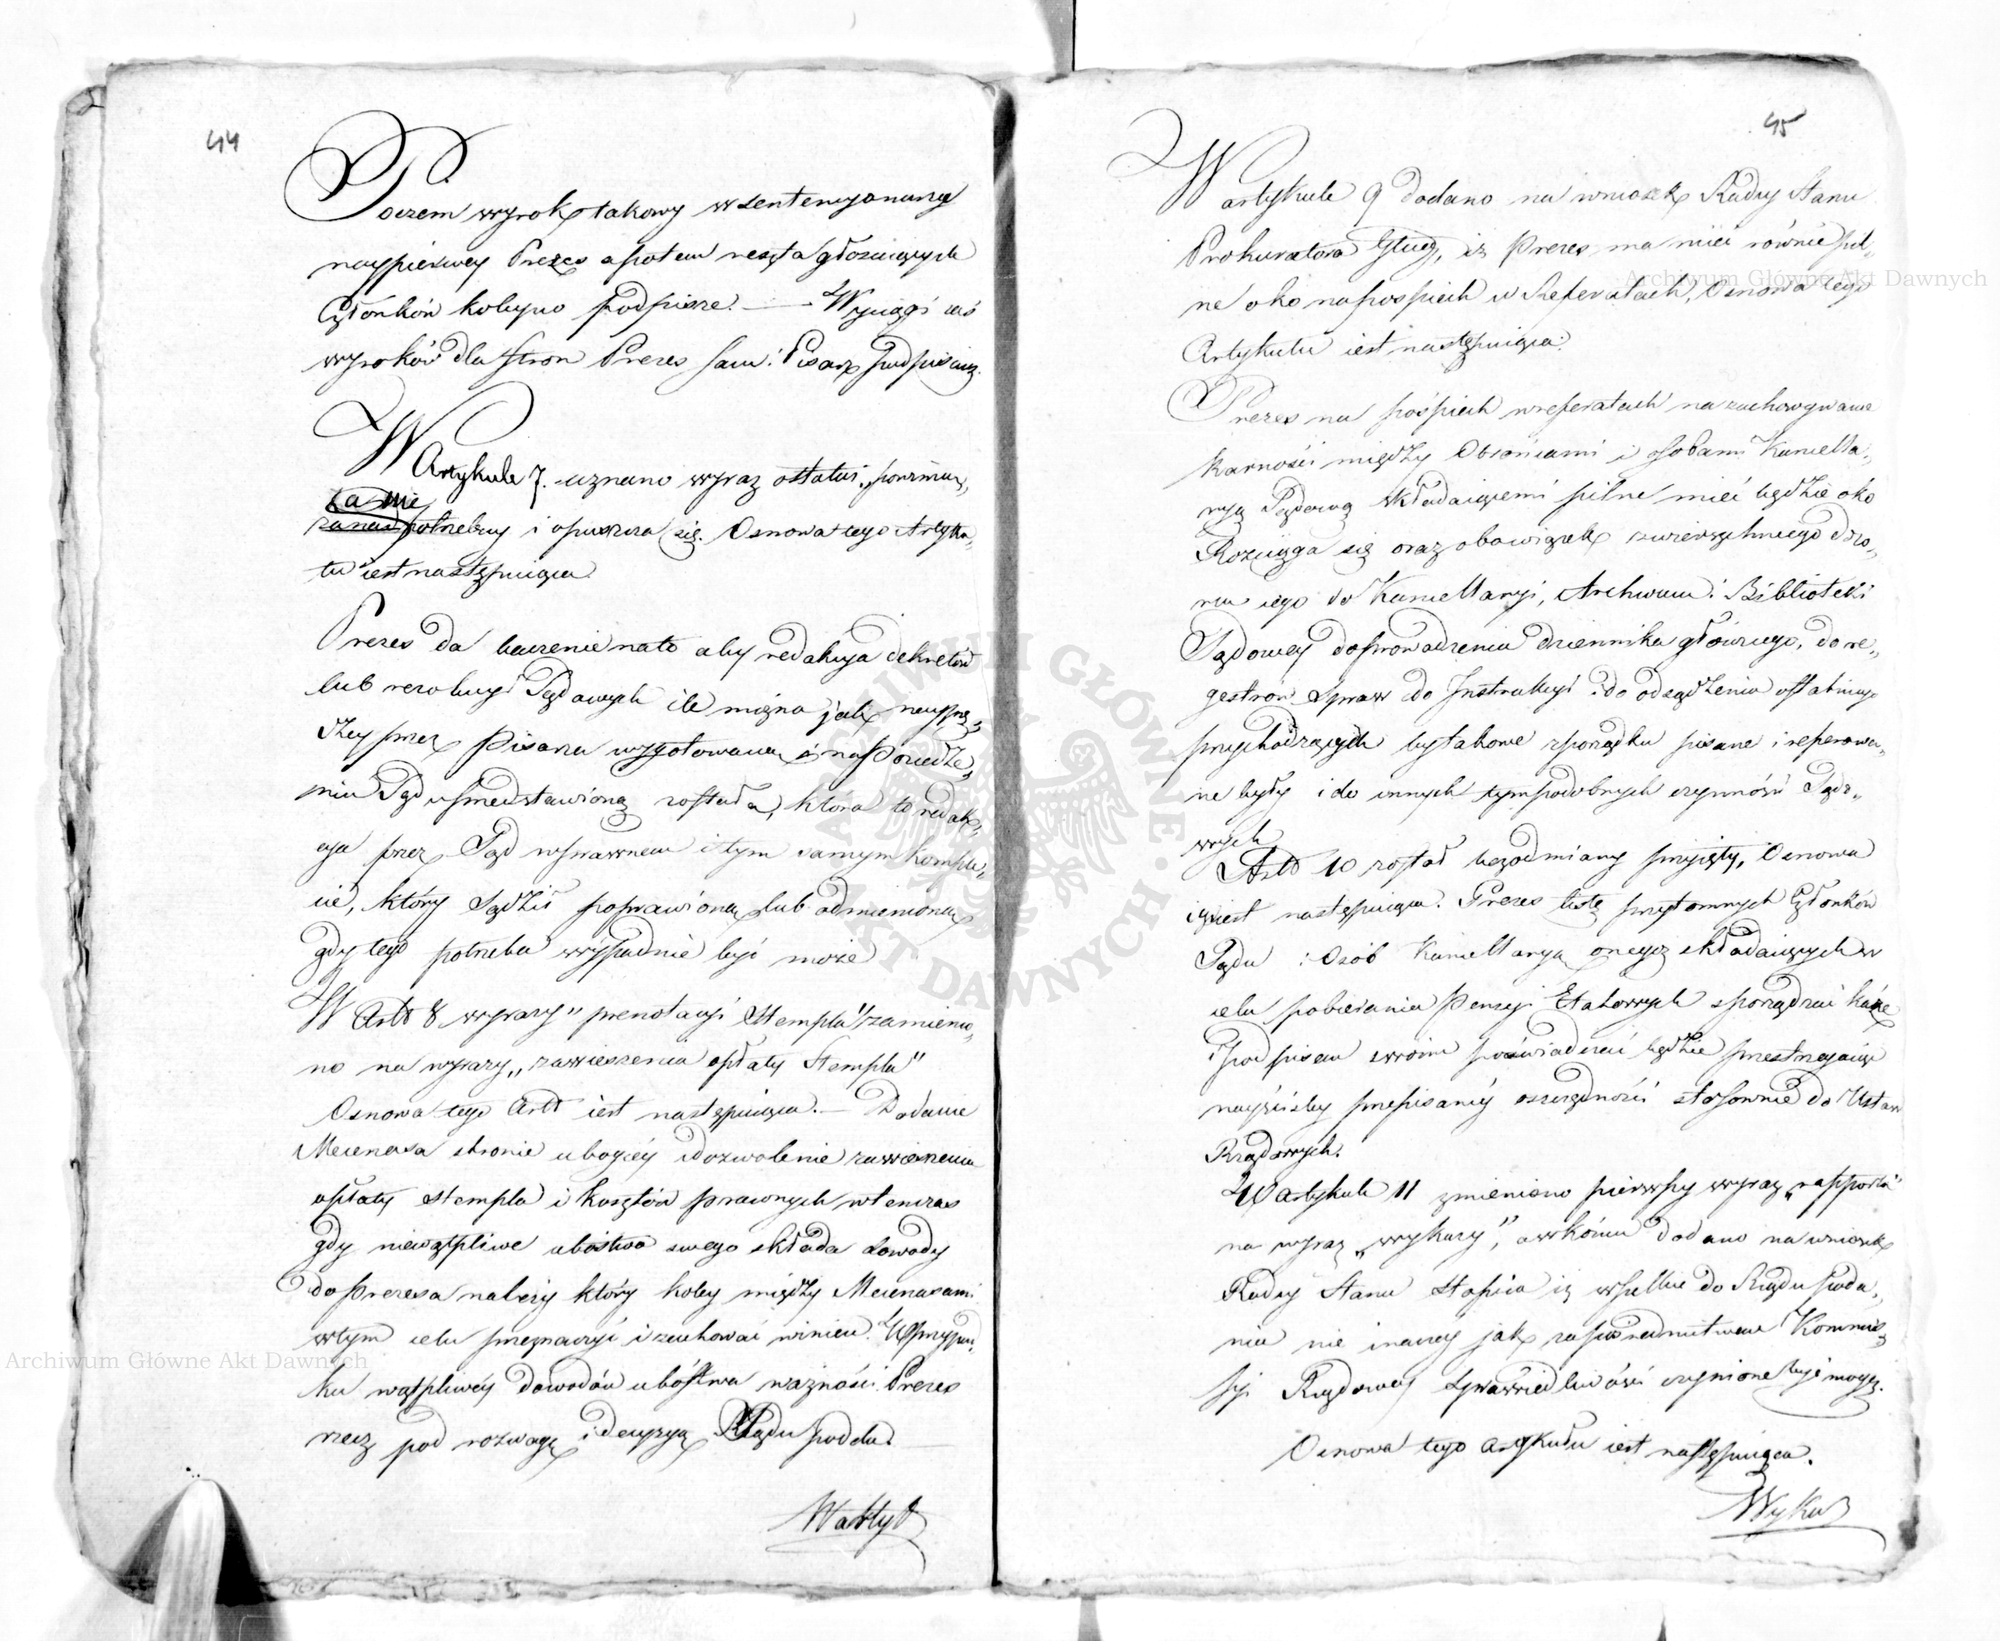 44
Poczem wyrok takowy w sentencyonarzu
naypierwey Prezes a potem reszta głosuiących
Członków koleyno podpisze. — Wyciągi zaś
wyroków dla stron Prezes sam i Pisarz podpisuią.
W Artykule 7. uznano wyraz ostatni „powinna„
za nie
potrzebny i opuszcza się. Osnowa tego Artyku„
łu iest następuiąca
Prezes da baczenie na to aby redakcya dekretów
lub rezolucyi Sądowych ile można jak nayprę„
dzey przez Pisarza wygotowana i na Posiedze„
niu Sądu przedstawioną została, która to redak„
cya przez Sąd w prawnem i tym samym komple„
cie, który Sądził poprawioną lub odmienioną
gdy tego potrzeba wypadnie być może
W Artt 8 wyrazy „prenotacyi Stempla" zamienio„
no na wyrazy „zawieszenia opłaty Stempla"
Osnowa tego Artt iest następuiąca. — Dodanie
Mecenasa stronie ubogiey i dozwolenie zawieszenia
opłaty stempla i kosztów prawnych wtenczas
gdy niewątpliwe ubóstwa swego składa dowody
do Prezesa należy który koley między Mecenasami
w tym celu przeznaczyć i zachować winien. W przypad„
ku wątpliwéy dowodów ubóstwa ważności Prezes
rzecz pod rozwagę i decyzyą Sądu podda.
W artyk
45
W artykule 9 dodano na wniosek Radcy Stanu
Prokuratora Głneg, iż Prezes ma mieć równie pil„
ne oko na pospiech w Referatach, Osnowa tego
Artykułu iest następuiąca:
Prezes na pospiech w referatach na zachowywanie
karności między Obrońcami i osobami Kancella„
ryą Sądową składaiącemi pilne mieć będzie oko
Rozciąga się oraz obowiązek zwierzchniego dozo„
ru iego do Kancellaryi, Archiwum i Biblioteki
Sądowey do prowadzenia dziennika głównego, do re„
gestrow Spraw do Instrukcyi i do odsądzenia ostatniego
przychodzących by takowe w porządku pisane i referowa„
ne były i do innych tym podobnych czynności Sądo„
wych
Artt 10 został bez odmiany przyięty, Osnowa
iego iest następuiąca. Prezes listę przytomnych Członków
Sądu i Osób Kancellaryą onegoż składaiących w
celu pobierania Pensyi Etatowych sporządzać każe
i podpisem swoim poświadczać będzie przestrzegaiąc
nayściśley przepisanéy oszczędności stosownie do Ustaw
Rządowych.
W artykule 11 zmieniono pierwszy wyraz „rapporta"
na wyraz „wykazy", a w końcu dodano na wniosek
Radcy Stanu Stopica iż wszelkie do Rządu poda„
nia nie inaczey jak za pośrednictwem Kommis„
syi Rządowey Sprawiedliwości czynione być mogą.
Osnowa tego artykułu iest następuiąca.
Wykaz
Archiwum Główne Akt Dawnych
Archiwum Główne Akt Dawnych
ARCHIWUM GŁÓWNE AKT DAWNYCH